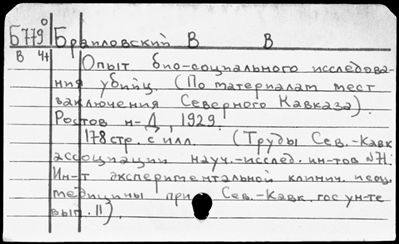 Б779 Браиловский В В
В 4
Опыт био-социального исследова-
ния убийц. (По материалам мест
заключения Северного Кавказа).
Ростов н-Д 1929.
178 стр. с илл. (Труды Сев.-Кавк
ассоциации науч.-исслед. ин-тов №71.
Ин-т экспериментальной клинич. псих.
медицины при Сев.-Кавк. гос ун-те
вып. II).